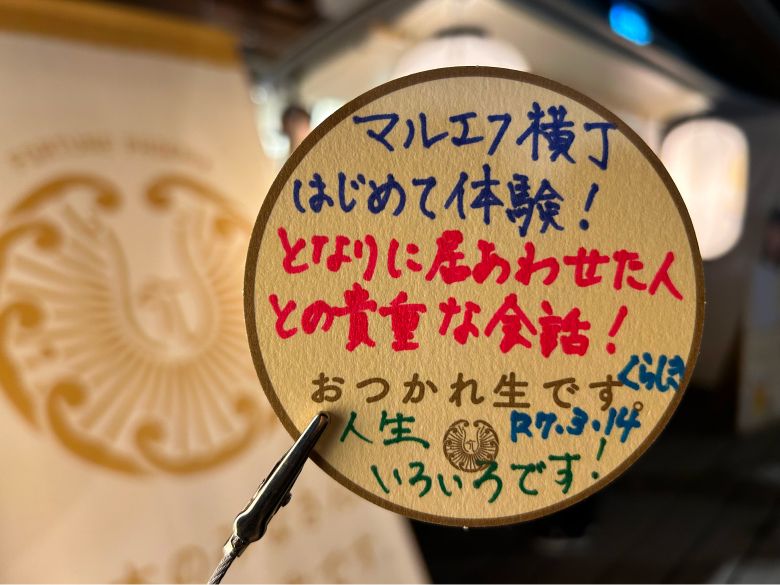 マルエフ横丁
はじめて体験!
となりに居あわせた人
との貴重な会話!
おつかれ生です。
くらしき
人生
R7.3.14
いろいろです!